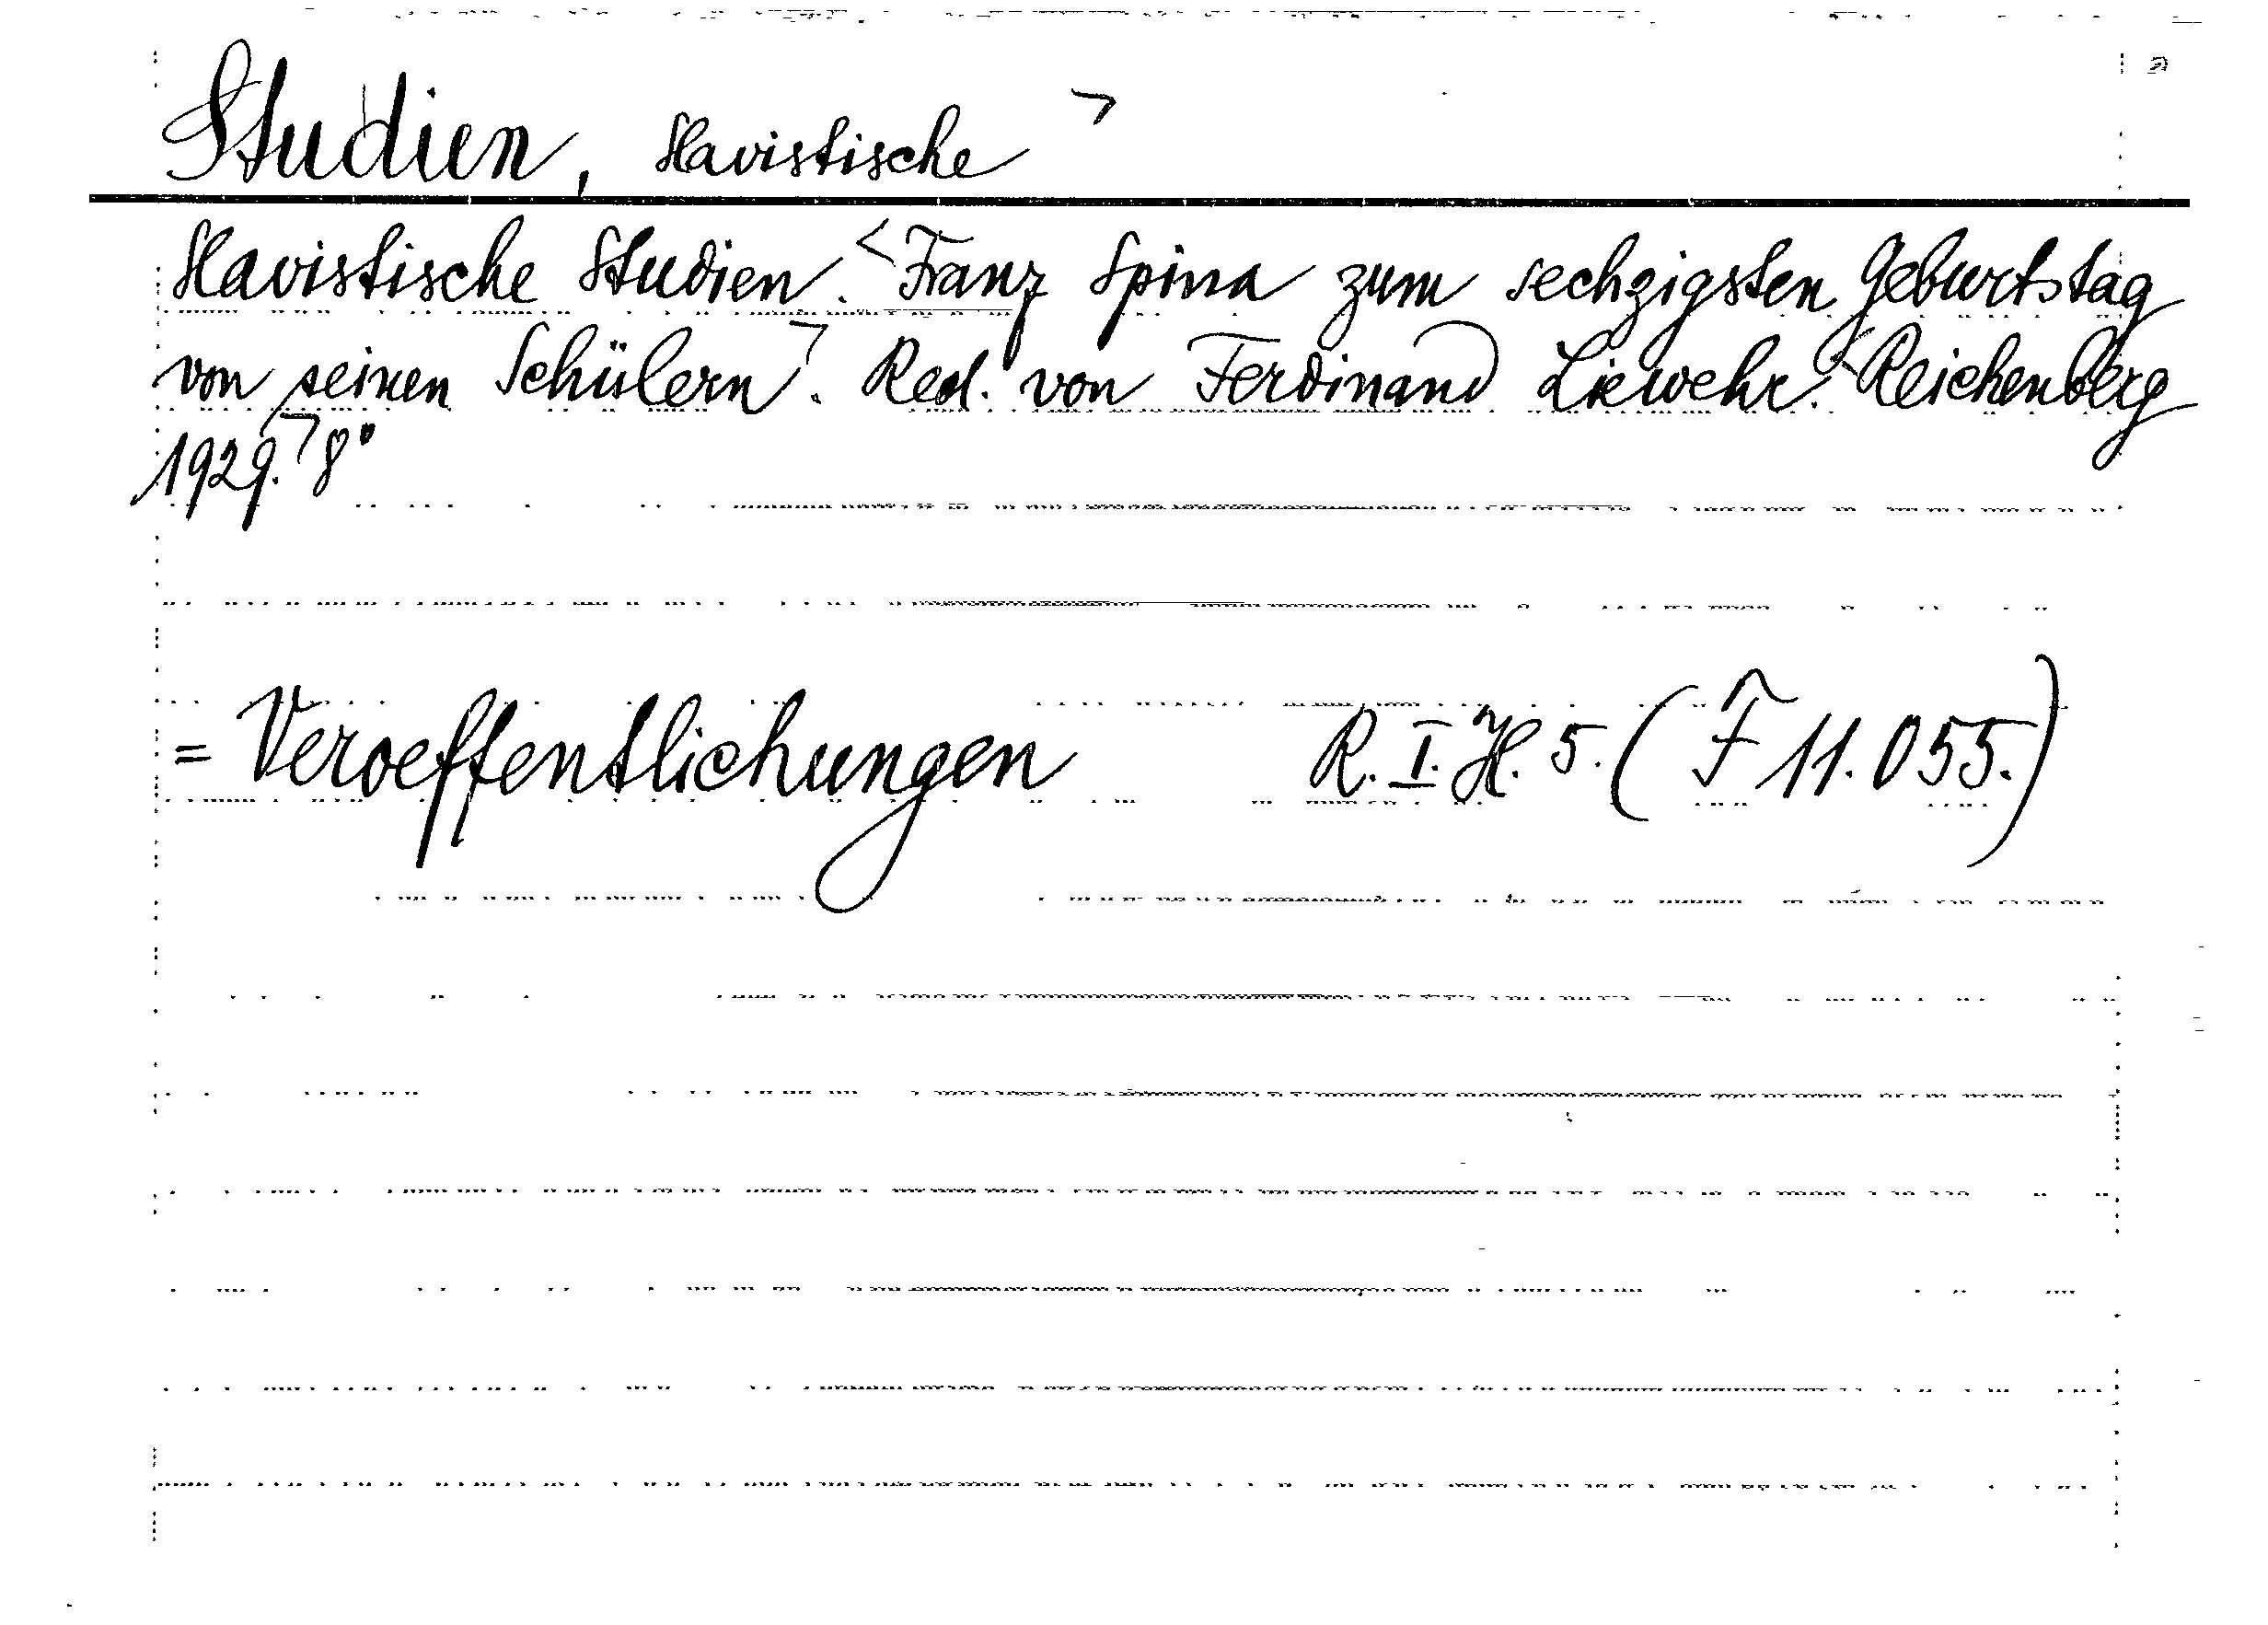 Studien, slavistische ¬
Slavistische Studien. <Franz Spina zum sechzigsten Geburtstag
von seinen Schülern¬. Red. von Ferdinand Liewehr. <Reichenberg
1929.¬ 8°
= Veroeffentlichungen R. I. H. 5. (F 11.055.)